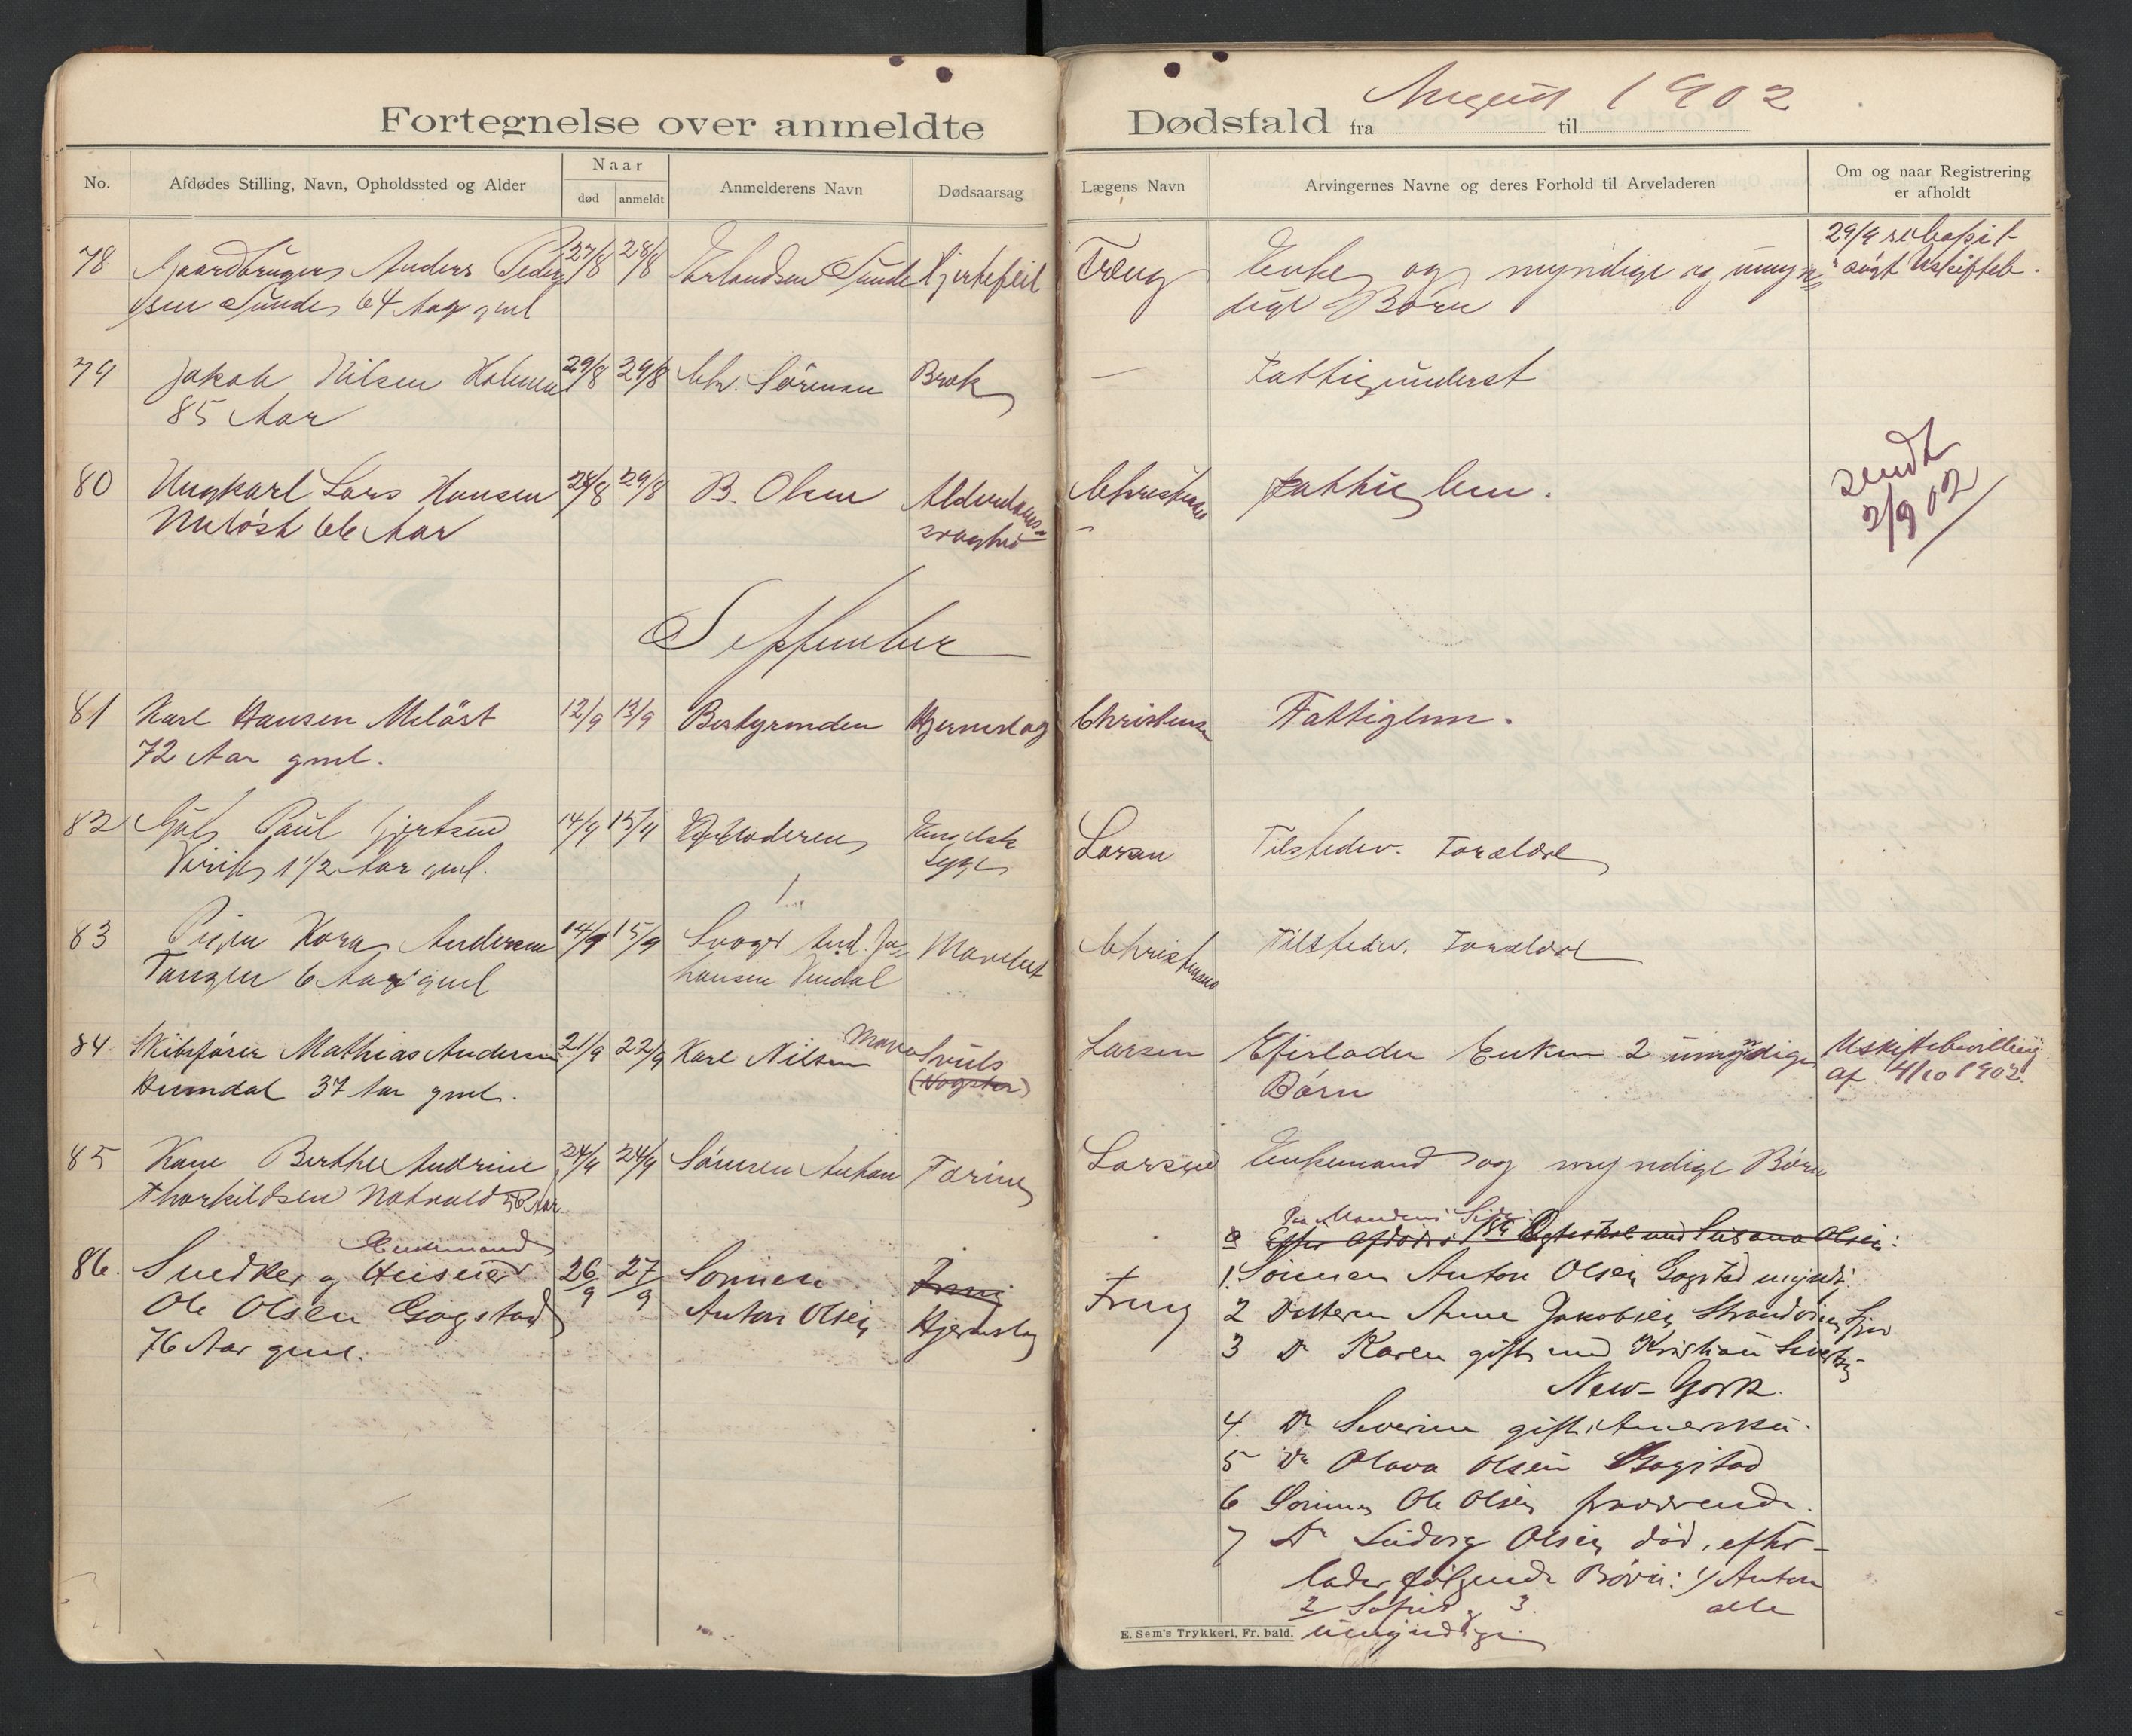 Fortegnelse over anmeldte Dødsfald fra August 1902 til
No.
Afdødes Stilling, Navn, Opholdssted og Alder
Naar
død
anmeldt
Anmelderens Navn
Dødsaarsag
Lægens Navn
Arvingernes Navne og deres Forhold til Arveladeren
Om og naar Registrering
er afholdt
78 Gaardbruger Anders Peder 27/8 28/8 Erlandsen Sunde Hjertefeil Træug Enke og myndige og umyn- 29/9
sen Sunde 64 Aar gml dige Børn søgt Uskifteb.
79 Jakob Nilsen Holmen 29/8 29/8 Chr. Sørensen Brok — Fattigunderst
85 Aar
80 Ungkarl Lars Hansen 28/8 29/8 B. Olsen Alderdoms- Christensen Fattiglem. sendt
Meløst 66 Aar svaghed 2/9 02
September
81 Karl Hansen Meløst 12/9 13/9 Bestyrinden Hjerneslag Christensen Fattiglem.
72 Aar gml.
82 Paul Gjertsen 14/9 15/9 Engelsk Larsen Tilstedev. Forældre
Virik 1 1/2 Aar gml. Syge
83 Pigen Kora Andersen 14/9 15/9 Svoger And. Jo- Christensen Tilstedev. Forældre
Tangen 6 Aar gml hansen Vindal
84 Skibsfører Mathias Andersen 21/9 22/9 Karl Nilsen Mave Svuls Larsen Efterlader Enken 2 umyndige Uskiftebevilling
37 Aar gml. Børn af 4/10 1902.
85 Kone Berthe Andrine 24/9 24/9 Sønnen Anton Larsen Enkemand og myndige Børn
Thorkildsen 58 Aar
Paa Mandens Side
Efter Afdødes Egteskab med Olsen:
Enkemand
86. Snedker og Huseier 26/9 27/9 Sønnen Træug 1. Sønnen Anton Olsen Gogstad myndi.
Ole Olsen Gogstad Anton Olsen Hjerneslag 2 Datteren Anne Jakobsen
76 Aar gml. 3 Do Karen gift med Kristian
New-York.
4. Do Severine gift i Amerika.
5 Do Olava Olsen Gogstad
6 Sønnen Ole Olsen fraværende.
7 Do Ludvig Olsen død, efter-
lader følgende Børn: 1/ Anton
2 3. alle
umyndige
E. Sem's Trykkeri, Fr. hald.